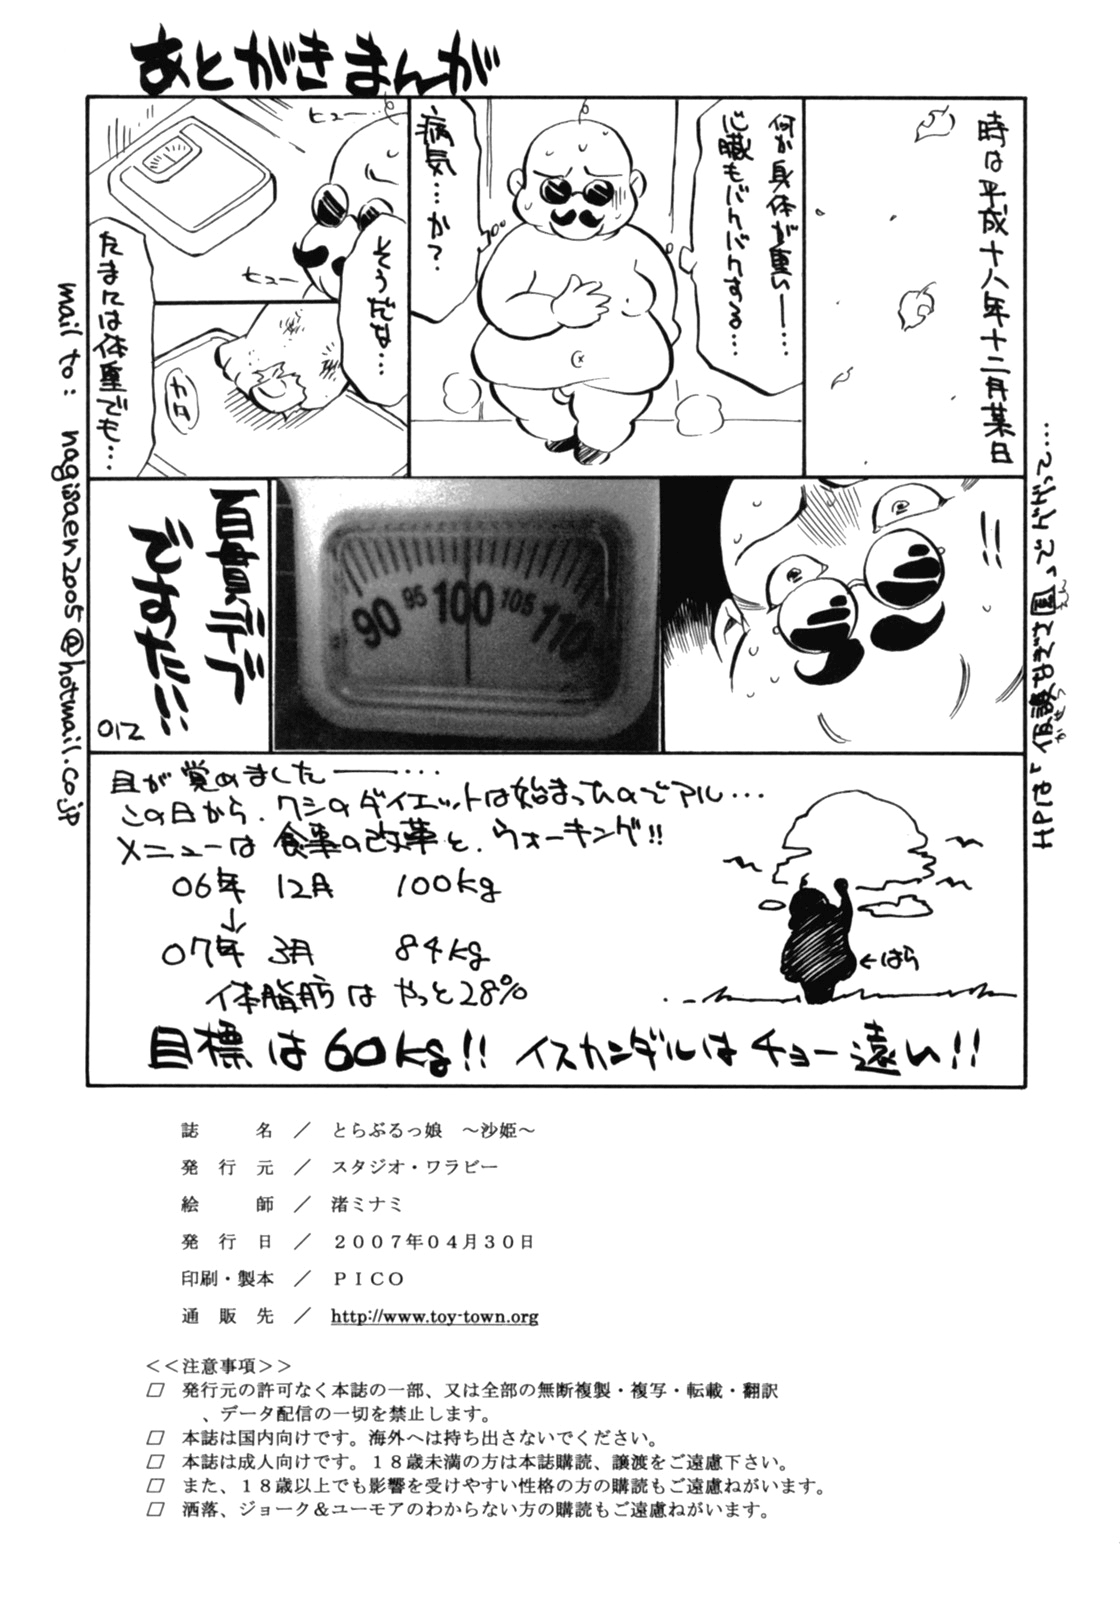 あとがきまんが
時は平成十八年十二月某日
何か身体が重い―…
心臓もバクバクする…
病気…か？
ヒュー…
ヒュー
そうだな…
たまには体重でも…
カタ
!!
90 95 100 105 110
百貫デブ
ですた!!
012
目が覚めました―…
この日から、ワシのダイエットは始まったのでアル…
メニューは食事の改革と、ウォーキング!!
06年 12月 100kg
↓
07年 3月 84kg
体脂肪はやっと28%
←はら
目標は60kg!! イスカンダルはチョー遠い!!
mail to: nagisaen2005@hotmail.co.jp
誌名／とらぶるっ娘 ～沙姫～
発行元／スタジオ・ワラビー
絵師／渚ミナミ
発行日／２００７年０４月３０日
印刷・製本／ＰＩＣＯ
通販先／http://www.toy-town.org
＜＜注意事項＞＞
□ 発行元の許可なく本誌の一部、又は全部の無断複製・複写・転載・翻訳
、データ配信の一切を禁止します。
□ 本誌は国内向けです。海外へは持ち出さないでください。
□ 本誌は成人向けです。１８歳未満の方は本誌購読、譲渡をご遠慮下さい。
□ また、１８歳以上でも影響を受けやすい性格の方の購読もご遠慮ねがいます。
□ 洒落、ジョーク＆ユーモアのわからない方の購読もご遠慮ねがいます。